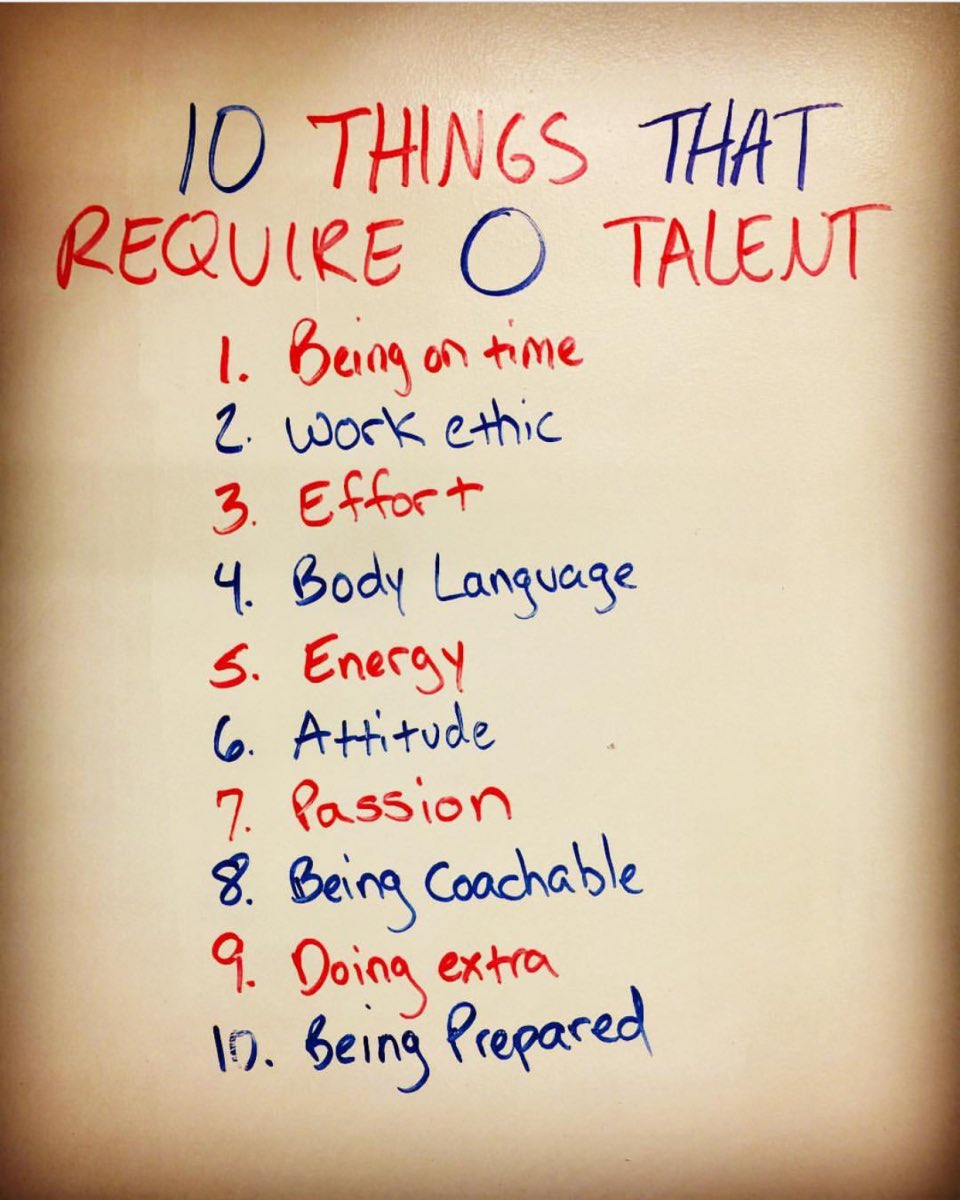 10 THINGS THAT
REQUIRE 0 TALENT
1. Being on time
2. Work ethic
3. Effort
4. Body Language
5. Energy
6. Attitude
7. Passion
8. Being Coachable
9. Doing extra
10. Being Prepared